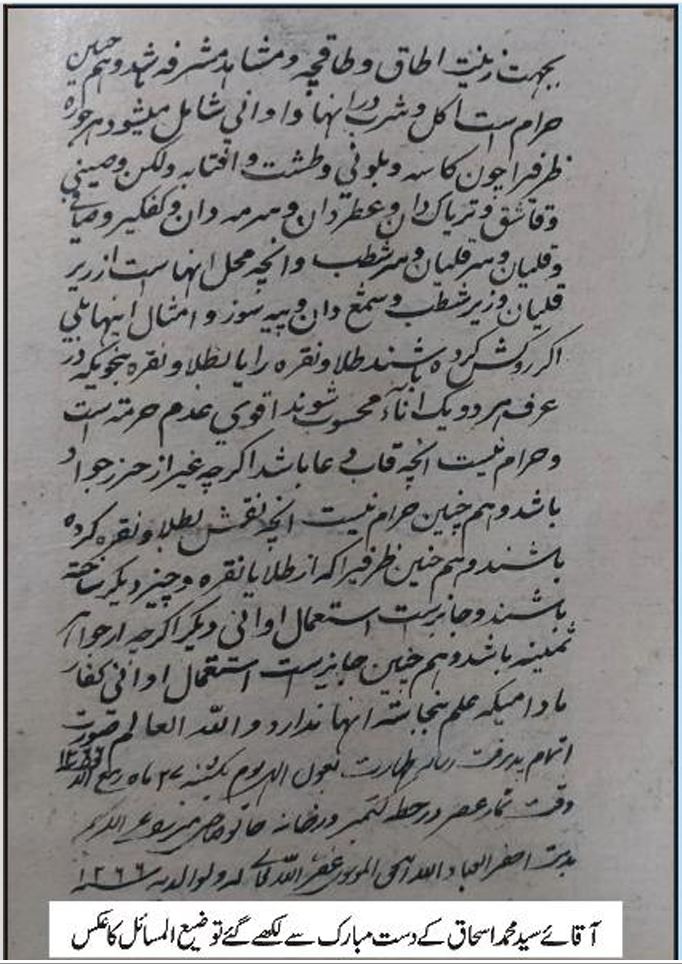 بجهت زینت اطاق و طاقچه و مشاهد مشرفه شد و هم چنین
حرام است اکل و شرب در انها و اوانی شامل میشود هر
ظرفیرا چون کاسه و بلونی و طشت و افتابه و لکن و صینی
و قاشق و تریاک دان و عطر دان و سرمه دان و کفکیر و صافی
و قلیان و سر قلیان و سر شطب و انچه محل انهاست از زیر
قلیان و زیر شطب و شمع دان و پیه سوز و امثال اینها بلی
اکر روکش کرده باشند طلا و نقره را یا بطلا و نقره بنحویکه در
عرف هر دو یک اناء محسوب شوند اقوی عدم حرمته است
و حرام نیست انچه قاب دعا باشد اکرچه غیر از حرز جواد
باشد و هم چنین حرام نیست انچه نقش بطلا و نقره کرده
باشند و هم چنین ظرفیرا که از طلا یا نقره و چیز دیکر ساخته
باشند و جایز است استعمال اوانی دیکر اکرچه از جواهر
ثمینه باشد و هم چنین جایز است استعمال اوانی کفار
مادامیکه علم بنجاسته انها ندارد و الله العالم صورت
اتمام پذیرفت رساله طهارت بعون الله یوم یکشنبه ۲۷ ماه ربیع
وقت نماز عصر در خطه کشمیر در خانه
العباد الله الموسوی غفر الله له و لوالدیه سنه ۱۲۶۶
آقائے سید محمد اسحاق کے دست مبارک سے لکھے گئے توضیح المسائل کا عکس